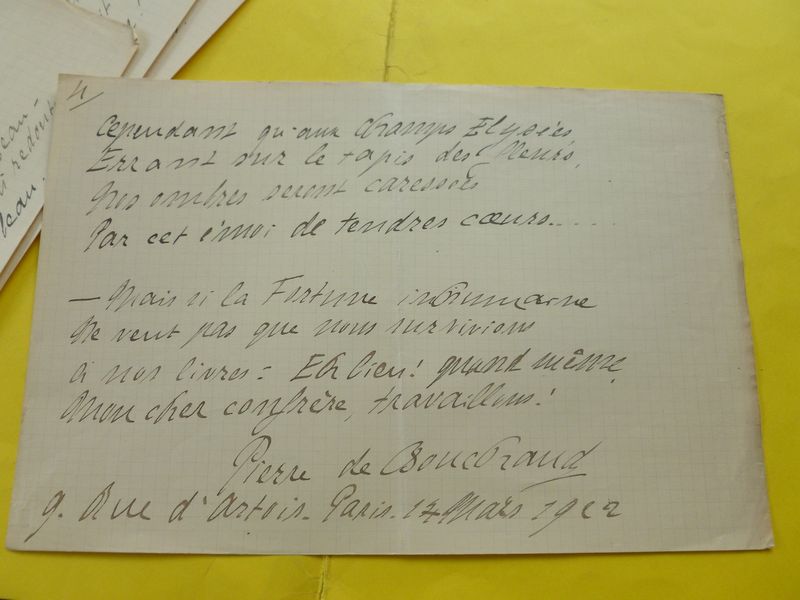 4/
Cependant qu'aux Champs Elysées
Errant sur le tapis des fleurs,
Nos ombres seront caressées
Par cet émoi de tendres cœurs.....
— Mais si la Fortune inhumaine
Ne veut pas que nous survivions
à nos livres = Eh bien! quand même,
Mon cher confrère, travaillons!
Pierre de Bouchaud
9. Rue d'Artois. Paris. 14 Mars 1922
eau -
redout
eau.